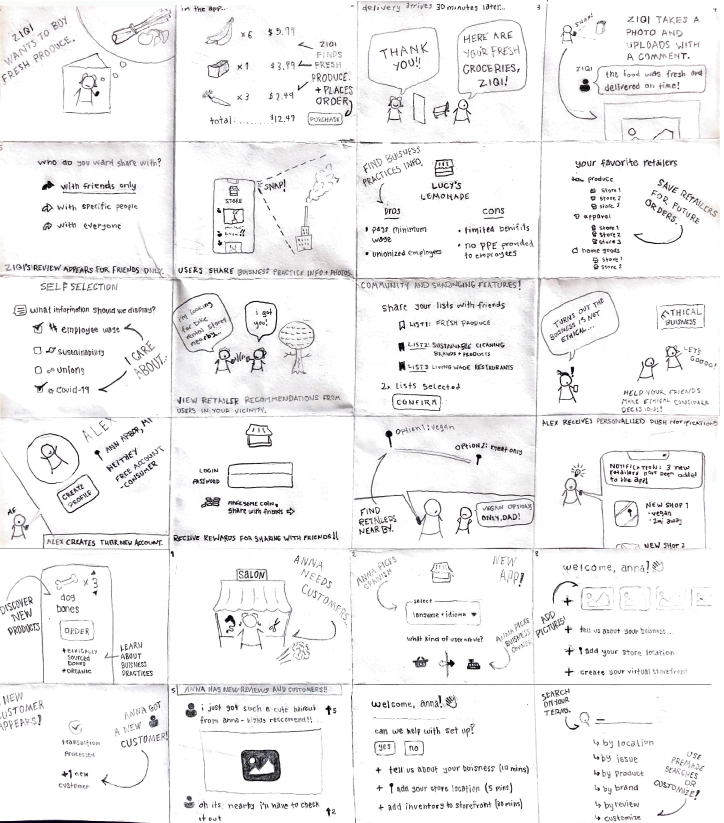 ZIQI
WANTS TO BUY
FRESH PRODUCE.
in the app...
x6 $5.99
x1 $3.99
x3 $2.49
total..... $12.49
ZIQI
FINDS
FRESH
PRODUCE
+ PLACES
ORDER
PURCHASE
delivery arrives 30 minutes later...
THANK
YOU!!
HERE ARE
YOUR FRESH
GROCERIES,
ZIQI!
3
SNAP!
ZIQI TAKES A
PHOTO AND
UPLOADS WITH
A COMMENT.
ZIQI
the food was fresh and
delivered on time!
5
who do you want share with?
with friends only
with specific people
with everyone
ZIQI'S REVIEW APPEARS FOR FRIENDS ONLY.
SNAP!
STORE
USERS SHARE BUISNESS PRACTICE INFO + PHOTOS
FIND BUISNESS
PRACTICES INFO.
LUCY'S
LEMONADE
pros
• pays minimum
wage
• unionized employees
cons
• limited benifits
• no PPE provided
to employees
your favorite retailers
produce
store 1
store 2
store 3
apparel
store 1
store 2
store 3
home goods
store 1
store 2
SAVE RETAILERS
FOR FUTURE
ORDERS.
SELF SELECTION
What information should we display?
employee wage
sustainability
unions
Covid-19
I CARE
ABOUT...
i'm looking
for bike
rental stores
nearby..
i got
you!
VIEW RETAILER RECOMMENDATIONS FROM
USERS IN YOUR VICINITY.
COMMUNITY AND SHARINGING FEATURES!
share your lists with friends
LIST1: FRESH PRODUCE
LIST2: SUSTAINABLE CLEANING
BRANDS + PRODUCTS
LIST3 LIVING WAGE RESTAURANTS
2x Lists Selected
CONFIRM
TURNS OUT THE
BUSINESS IS NOT
ETHICAL...
ETHICAL
BUSINESS
LET'S
GOOOO!
HELP YOUR FRIENDS
MAKE ETHICAL CONSUMER
DECISIONS!
ALEX
ANN ARBOR, MI
HE/THEY
FREE ACCOUNT
-CONSUMER
CREATE
PROFILE
ME
ALEX CREATES THEIR NEW ACCOUNT.
LOGIN
PASSWORD
AWESOME COIN,
Share with friends
RECEIVE REWARDS FOR SHARING WITH FRIENDS!!
Option 1: vegan
OPTION 2: meat only
FIND
RETAILERS
NEARBY.
VEGAN OPTION
ONLY, DAD!
ALEX RECEIVES PERSONALIZED PUSH NOTIFICATIONS
NOTIFICATION: 3 new
retailers have been added
to the app!
NEW SHOP 1
- vegan
- 2mi away
NEW SHOP 2
DISCOVER
NEW
PRODUCTS
x 3
dog
bones
ORDER
+ ethically
sourced
bones
+ ORGANIC
LEARN
ABOUT
BUISNESS
PRACTICES
1
SALON
ANNA
NEEDS
CUSTOMERS.
2
ANNA PICKS
SPANISH
NEW
APP!
select
language • idioma
what kind of user are we?
ANNA PICKS
BUISNESS
OWNER
3
welcome, anna!
ADD
PICTURES!
+ tell us about your buisness...
+ add your store location
+ create your virtual storefront
A NEW
CUSTOMER
APPEARS!
transaction
processed
+1 new
customer
ANNA GOT
A NEW
CUSTOMER!
5
ANNA HAS NEW REVIEWS AND CUSTOMERS!!
i just got such a cute haircut
from anna - highly reccomend!!
5
oh its nearby i'll have to check
it out
2
welcome, anna!
can we help with set up?
yes
no
+ tell us about your buisness (10 mins)
+ add your store location (5 mins)
+ add inventory to storefront (20 mins)
SEARCH
ON YOUR
TERMS.
by location
by issue
by product
by brand
by review
customize
USE
PREMADE
SEARCHES
OR
CUSTOMIZE!